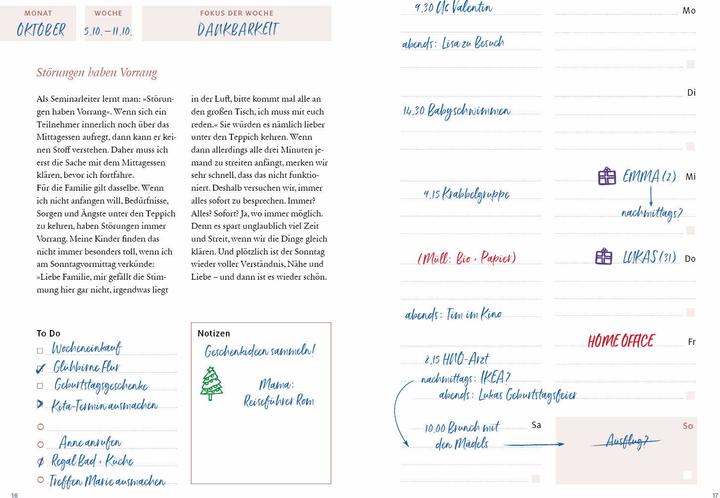 MONAT
OKTOBER
WOCHE
5.10.–11.10.
FOKUS DER WOCHE
DANKBARKEIT
Störungen haben Vorrang
Als Seminarleiter lernt man: »Störun-
gen haben Vorrang«. Wenn sich ein
Teilnehmer innerlich noch über das
Mittagessen aufregt, dann kann er kei-
nen Stoff verstehen. Daher muss ich
erst die Sache mit dem Mittagessen
klären, bevor ich fortfahre.
Für die Familie gilt dasselbe. Wenn
ich nicht anfangen will, Bedürfnisse,
Sorgen und Ängste unter den Teppich
zu kehren, haben Störungen immer
Vorrang. Meine Kinder finden das
nicht immer besonders toll, wenn ich
am Sonntagvormittag verkünde:
»Liebe Familie, mir gefällt die Stim-
mung hier gar nicht, irgendwas liegt
in der Luft, bitte kommt mal alle an
den großen Tisch, ich muss mit euch
reden.« Sie würden es nämlich lieber
unter den Teppich kehren. Wenn
dann allerdings alle drei Minuten je-
mand zu streiten anfängt, merken wir
sehr schnell, dass das nicht funktio-
niert. Deshalb versuchen wir, immer
alles sofort zu besprechen. Immer?
Alles? Sofort? Ja, wo immer möglich.
Denn es spart unglaublich viel Zeit
und Streit, wenn wir die Dinge gleich
klären. Und plötzlich ist der Sonntag
wieder voller Verständnis, Nähe und
Liebe – und dann ist es wieder schön.
To Do
Wocheneinkauf
Glühbirne Flur
Geburtstagsgeschenke
Kita-Termin ausmachen
Anne anrufen
Regal Bad + Küche
Treffen Marie ausmachen
Notizen
Geschenkideen sammeln!
Mama:
Reiseführer Rom
16
9.30 Valentin
Mo
abends: Lisa zu Besuch
Di
14.30 Babyschwimmen
EMMA (2) Mi
9.15 Krabbelgruppe
nachmittags?
(Müll: Bio + Papier)
LUKAS (31) Do
abends: Tim im Kino
HOMEOFFICE Fr
8.15 HNO-Arzt
nachmittags: IKEA?
abends: Lukas Geburtstagsfeier
10.00 Brunch mit
den Mädels
Sa
So
Ausflug?
17